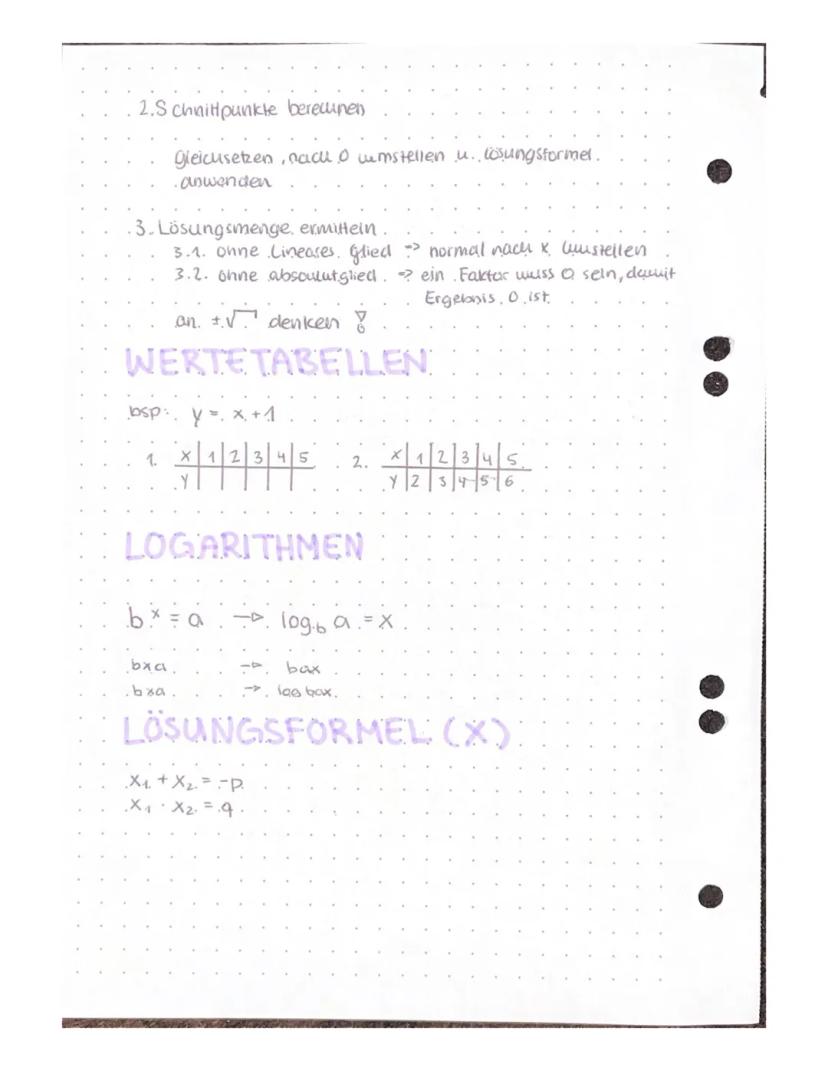 2. Schnittpunkte berechnen
gleichsetzen, nach 0 umstellen u. Lösungsformel
anwenden
3. Lösungsmenge ermitteln
3.1. ohne Lineares Glied -> normal nach x umstellen
3.2. ohne absolutglied -> ein Faktor muss 0 sein, damit
Ergebnis 0 ist
an ±√ denken !
WERTETABELLEN
bsp: y = x + 1
1. x | 1 | 2 | 3 | 4 | 5 2. x | 1 | 2 | 3 | 4 | 5
y | | | | | y | 2 | 3 | 4 | 5 | 6
LOGARITHMEN
bˣ = a -> log_b a = x
bxa -> bax
bxa -> log bax
LÖSUNGSFORMEL (X)
x₁ + x₂ = -p
x₁ · x₂ = q